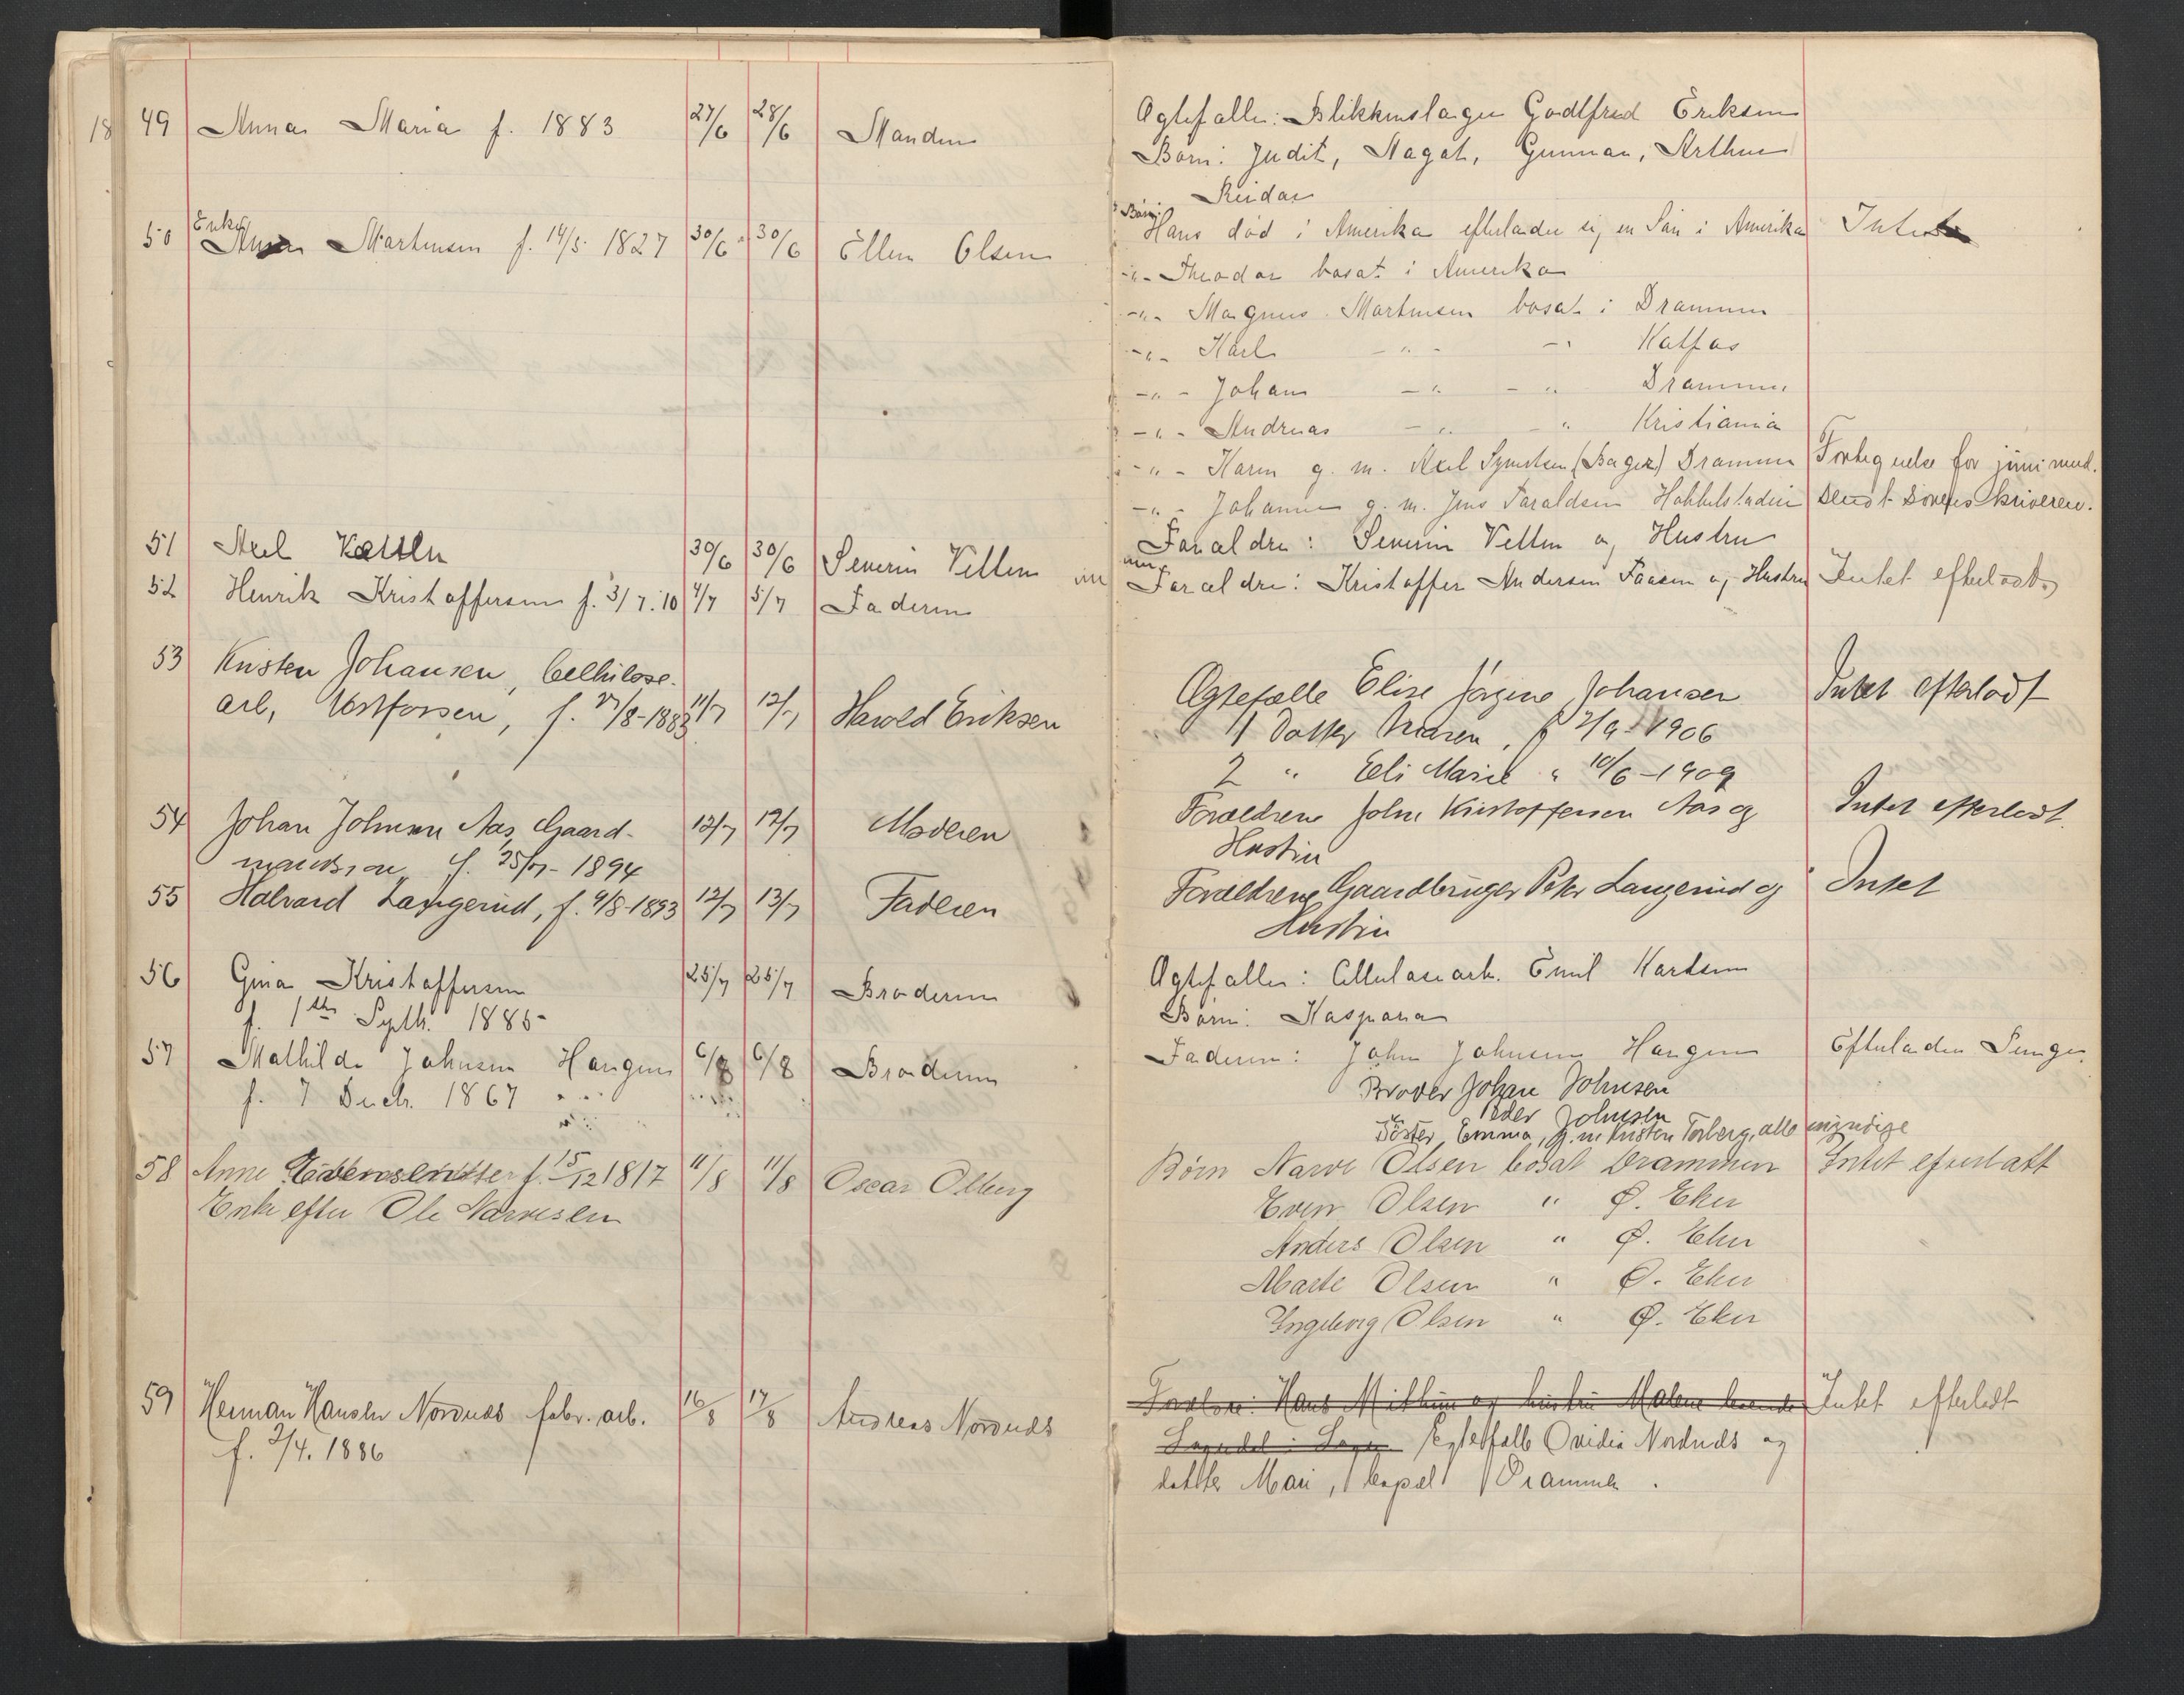 18 49 Anna Maria f. 1883 27/6 28/6 Manden
50 Enke Martinsen f. 14/5 1827 30/6 30/6 Ellen Olsen
51 Axel Vellen 30/6 30/6 Severin Vellen
52 Henrik Kristoffersen f. 3/7.10 4/7 5/7 Faderen
53 Kristen Johansen, Cellulose-
arb, Vestfossen, f. 27/8-1883 11/7 12/7 Harold Eriksen
54 Johan Johnsen Aas, Gaard- 12/7 12/7 Moderen
mandssøn f. 25/7-1894
55 Halvard Langerud, f. 4/8-1893 12/7 13/7 Faderen
56 Gina Kristoffersen 25/7 25/7 Broderen
f. 1ste Septb. 1885
57 Mathilde Johnsen Haugen 6/8 6/8 Broderen
f. 7 Decb. 1867
58 Anne Evensdatter f. 15/12 1817 11/8 11/8 Oscar Olberg
Enke efter Ole Narvesen
59 Herman Hansen Nordnes fabr. arb. 16/8 17/8 Andreas Nordnes
f. 2/4. 1886
Ægtefælle: Blikkenslager Godtfred Eriksen
Børn: Judit, Aagot, Gunnar, Arthur
Reidar
Børn: Hans død i Amerika efterlader sig en Søn i Amerika Intet
-"- Theodor bosat i Amerika
-"- Magnus Martinsen bosat i Drammen
-"- Karl -"- -"- Kalfos
-"- Johan -"- -"- Drammen
-"- Andreas -"- " Kristiania
-"- Karen g. m. Axel Syvertsen (Bager) Drammen Fortegnelse for juni mnd.
-"- Johanne g. m. Jens Taraldsen Hokkelstadeie sendt Sorenskriveren.
Forældre: Severin Vellen og Hustru
Forældre: Kristoffer Andersen Faasen og Hustru Intet efterladt
Ægtefælle Elise Jørgine Johansen Intet efterladt
1 Datter Maren, f 7/9-1906
2 " Eli Marie " 10/6-1909
Forældrene John Kristoffersen Aas og Intet efterladt.
Hustru
Forældrene Gaardbruger Peter Langerud og Intet
Hustru
Ægtefælle: Cellulosearb. Emil Karlsen
Børn: Kaspara
Faderen: John Johnsen Haugen Efterlader Penge.
Broder Johan Johnsen
" Peder Johnsen
Søster, Emma, g. m. Kristen Torberg, alle myndige
Børn Narve Olsen bosat Drammen Intet efterlatt
Even Olsen " Ø. Eker
Anders Olsen " Ø. Eker
Marte Olsen " Ø. Eker
Ingeborg Olsen " Ø. Eker
Hans og hustru Malene Intet efterladt
Egtefælle Ovidia Nordnes og
datter Mari, bopæl Drammen.